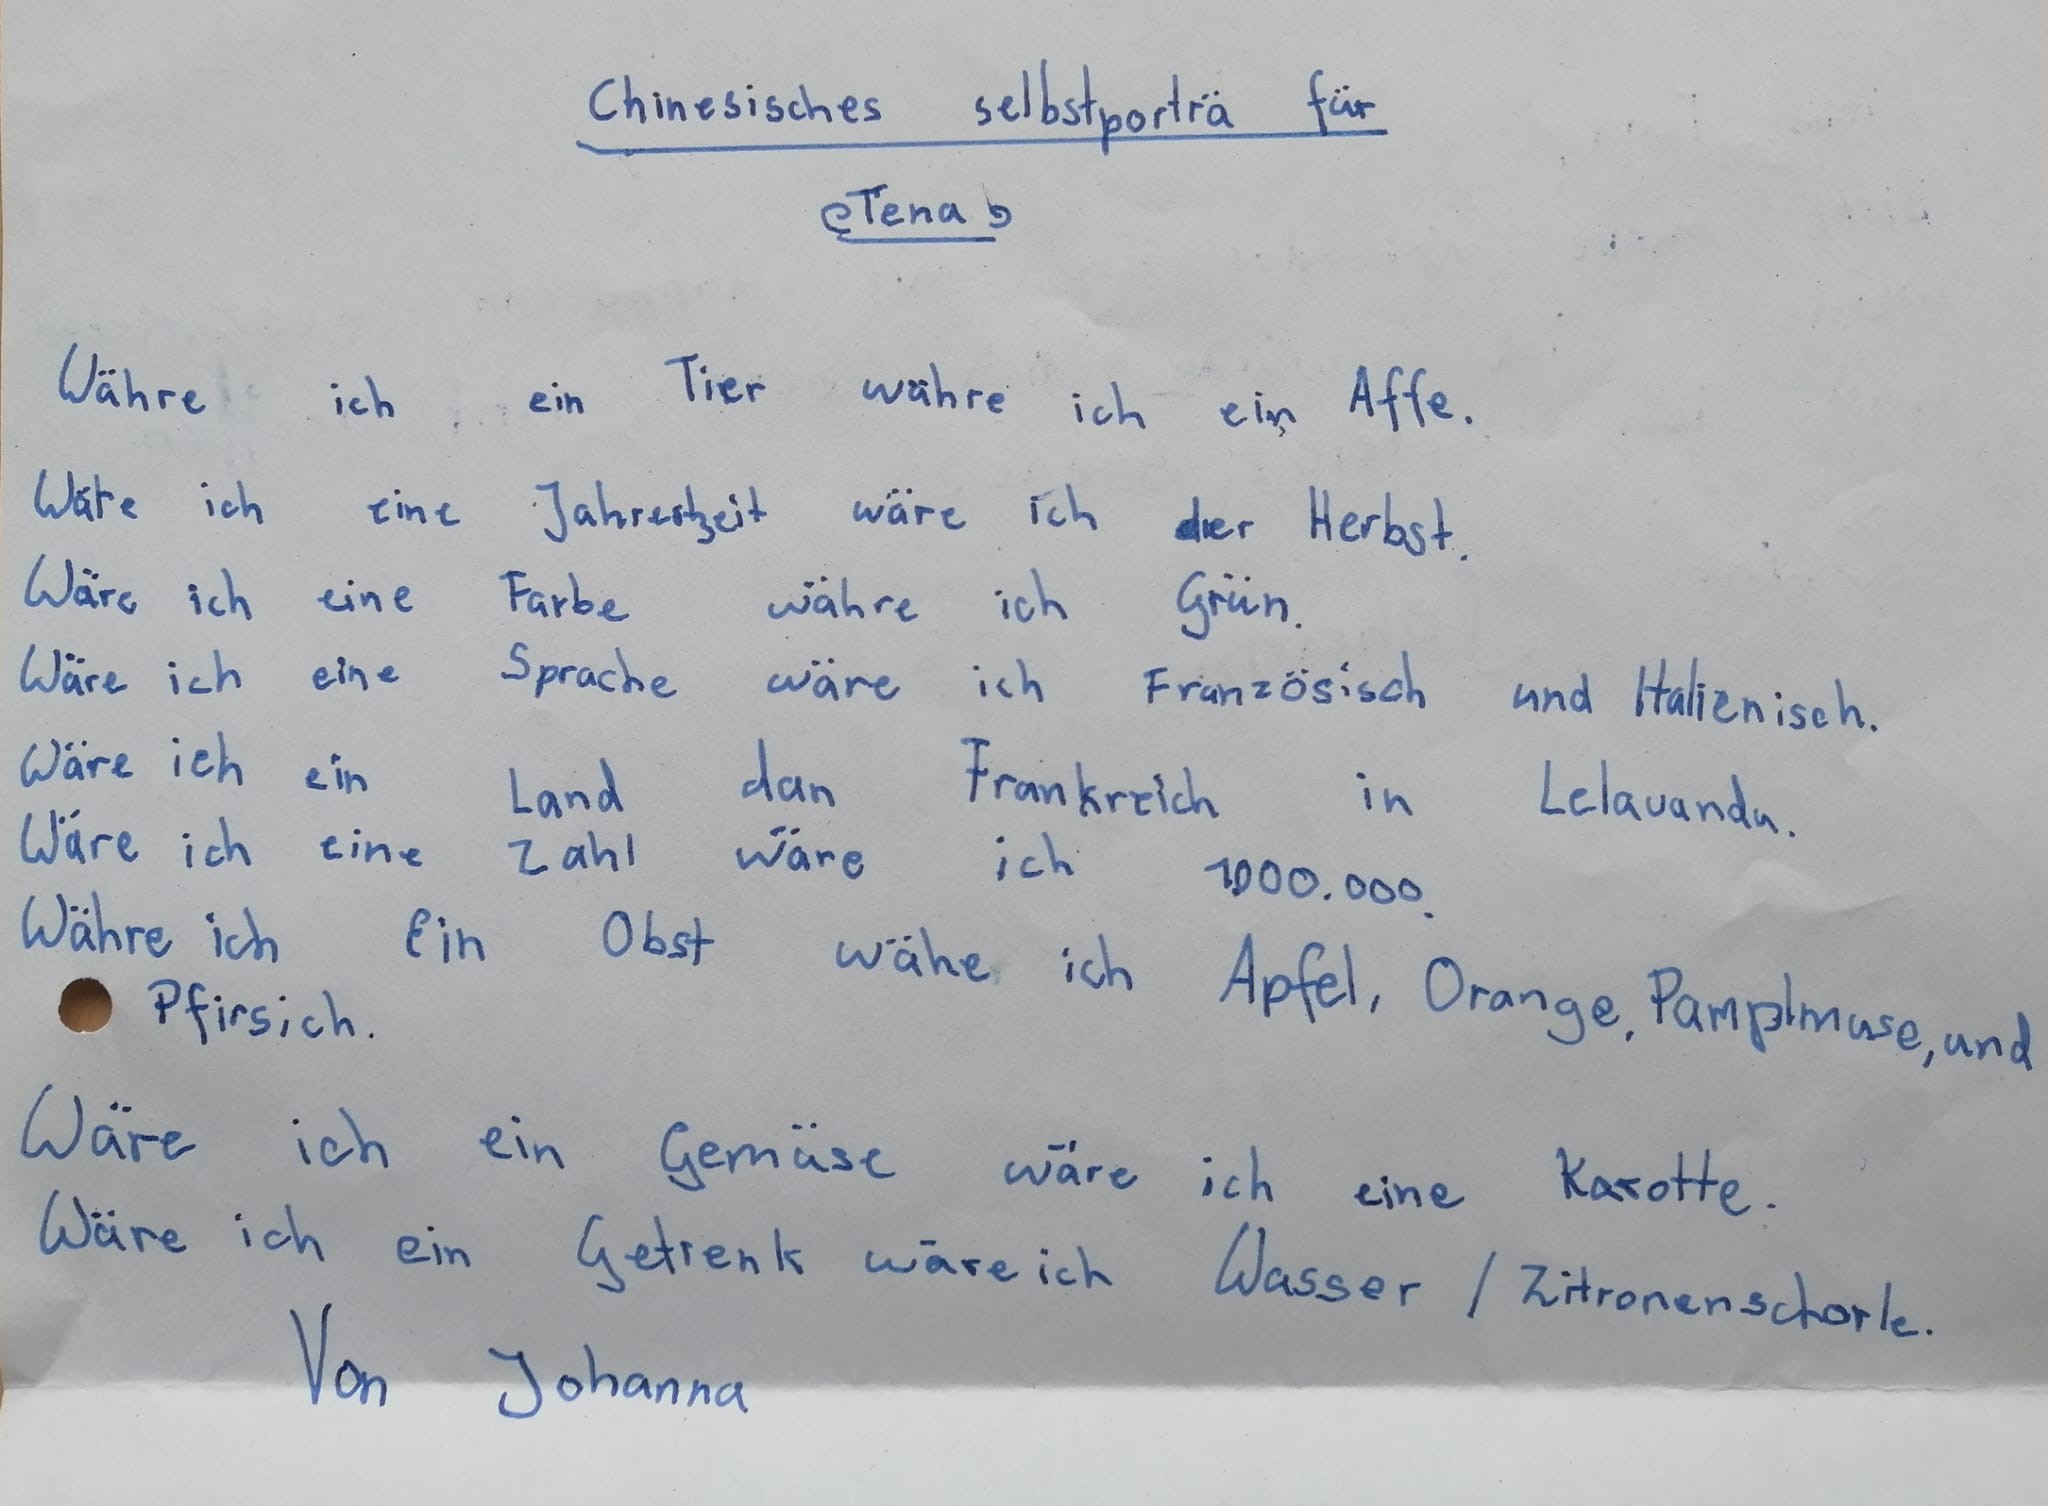 Chinesisches selbstporträ für
Tena
Währe ich ein Tier währe ich ein Affe.
Wäre ich eine Jahrestzeit wäre ich der Herbst.
Wäre ich eine Farbe währe ich Grün.
Wäre ich eine Sprache wäre ich Französisch und Italienisch.
Wäre ich ein Land dan Frankreich in Lelavandu.
Wäre ich eine Zahl wäre ich 1000.000.
Währe ich Ein Obst wähe ich Apfel, Orange, Pamplmuse, und
Pfirsich.
Wäre ich ein Gemüse wäre ich eine Karotte.
Wäre ich ein Getrenk wäre ich Wasser / Zitronenschorle.
Von Johanna